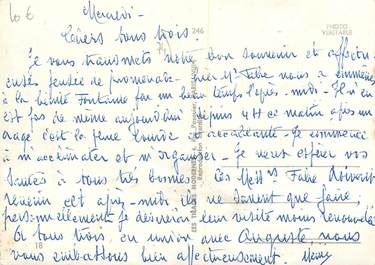 10 €
Mercredi -
Chers tous trois
246
PHOTO
VERITABLE
Je vous transmets notre bon souvenir et affectu-
euses pensées de promenade - hier Mr Fabre nous a emmenés
à la Sainte Fontaine par un beau temps l'après-midi - Il n'en
est pas de même aujourd'hui depuis 4 H ce matin après un
orage c'est la pluie lourde et accablante - Je commence
à m'acclimater et m'organiser - Je veux espérer vos
santés à tous très bonnes - Les Messrs Fabre doivent
venir cet après-midi ils ne savent que faire,
personnellement je désirerais leur visite moins renouvelée
18
A tous trois, en union avec Auguste, nous
vous embrassons bien affectueusement.